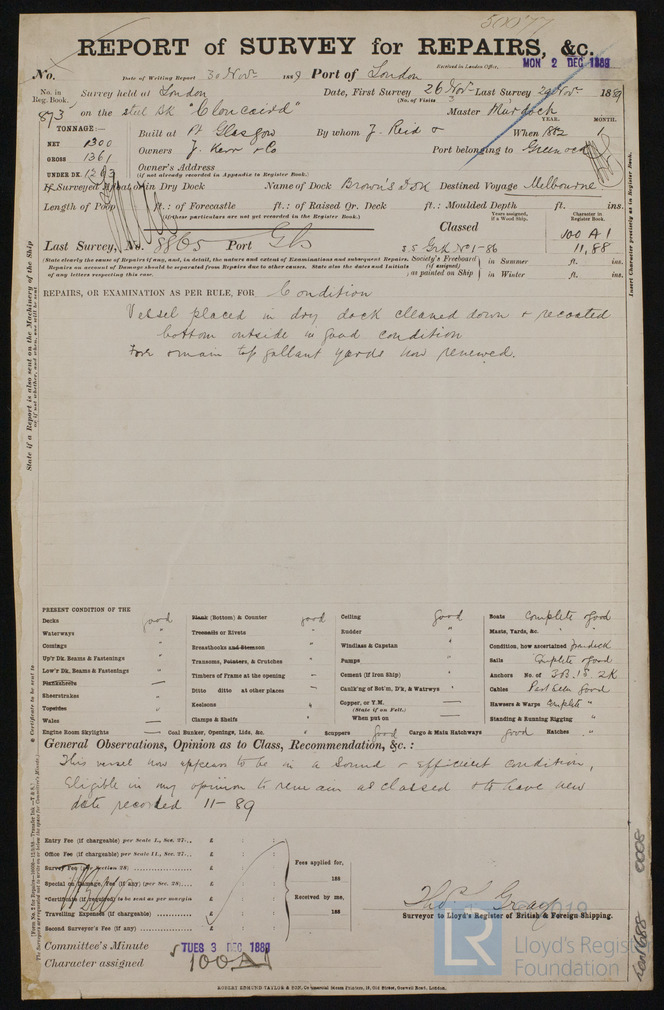 50077
REPORT of SURVEY for REPAIRS, &c.
Received in London Office, MON 2 DEC 1889
No. Date of Writing Report 30 Nov 1889 Port of London
No. in Reg. Book. Survey held at London Date, First Survey 26 Nov Last Survey 29 Nov 1889
(No. of Visits 3
873 on the steel Bk "Cloncaird" Master Murdoch
TONNAGE:— Built at Pt Glasgow By whom J. Reid & When 1882 YEAR. MONTH. 1
NET 1300
GROSS 1361
UNDER DK. 1293
Owners J. Kerr & Co Port belonging to Greenock
Owner's Address
(if not already recorded in Appendix to Register Book.)
If Surveyed Afloat or in Dry Dock Name of Dock Brown's D Dk Destined Voyage Melbourne
Length of Poop ft.: of Forecastle ft.: of Raised Qr. Deck ft.: Moulded Depth ft. ins.
(If these particulars are not yet recorded in the Register Book.)
Classed Years assigned, if a Wood Ship. Character in Register Book.
100 A1
11,88
Last Survey, No. 8865 Port Gls
S.S. Grk No 1-86
(State clearly the cause of Repairs if any, and, in detail, the nature and extent of Examinations and subsequent Repairs.
Repairs on account of Damage should be separated from Repairs due to other causes. State also the dates and initials
of any letters respecting this case.
Society's Freeboard (if assigned) as painted on Ship in Summer ft. ins.
in Winter ft. ins.
REPAIRS, OR EXAMINATION AS PER RULE, FOR Condition
Vessel placed in dry dock cleaned down & recoated
bottom outside in good condition
Fore & main top gallant yards now renewed.
State if a Report is also sent on the Machinery of the Ship
Insert Character precisely as in Register Book.
PRESENT CONDITION OF THE
Decks good
Waterways "
Comings "
Up'r Dk. Beams & Fastenings "
Low'r Dk. Beams & Fastenings "
Planksheers
Sheerstrakes "
Topsides
Wales —
Engine Room Skylights —
Blank (Bottom) & Counter good
Treenails or Rivets "
Breasthooks and Stemson "
Transoms, Pointers, & Crutches "
Timbers of Frame at the opening —
Ditto ditto at other places —
Keelsons "
Clamps & Shelfs —
Coal Bunker, Openings, Lids, &c. "
Ceiling good
Rudder "
Windlass & Capstan "
Pumps "
Cement (if Iron Ship) "
Caulk'ng of Bot'm, D'k, & Watrwys "
Copper, or Y.M. —
(State if on Felt.)
When put on —
Scuppers good Cargo & Main Hatchways good Hatches "
Boats Complete good
Masts, Yards, &c. " "
Condition, how ascertained from deck
Sails Complete good
Anchors No. of 3B. 1S. 2K
Cables Part seen good
Hawsers & Warps Complete "
Standing & Running Rigging "
General Observations, Opinion as to Class, Recommendation, &c. :
This vessel now appears to be in a sound & efficient condition,
Eligible in my opinion to remain as classed & to have new
date recorded 11-89
Entry Fee (if chargeable) per Scale I., Sec. 27... £ : :
Office Fee (if chargeable) per Scale II., Sec. 27... £ : :
Survey Fee (per Section 28) £ : :
Special or Damage, Fee (if any) (per Sec. 28) £ : :
*Certificate (if required) to be sent as per margin
Travelling Expenses (if chargeable) £ : :
Second Surveyor's Fee (if any) £ : :
Fees applied for,
188
Received by me,
188
Thos. Gray
Surveyor to Lloyd's Register of British & Foreign Shipping.
Committee's Minute TUES 3 DEC 1889
Character assigned 100A1
ROBERT EDMUND TAYLOR & SON, Commercial Steam Printers, 19, Old Street, Goswell Road, London.
© 2019
LR
Lloyd's Register
Foundation
Lon688 0008